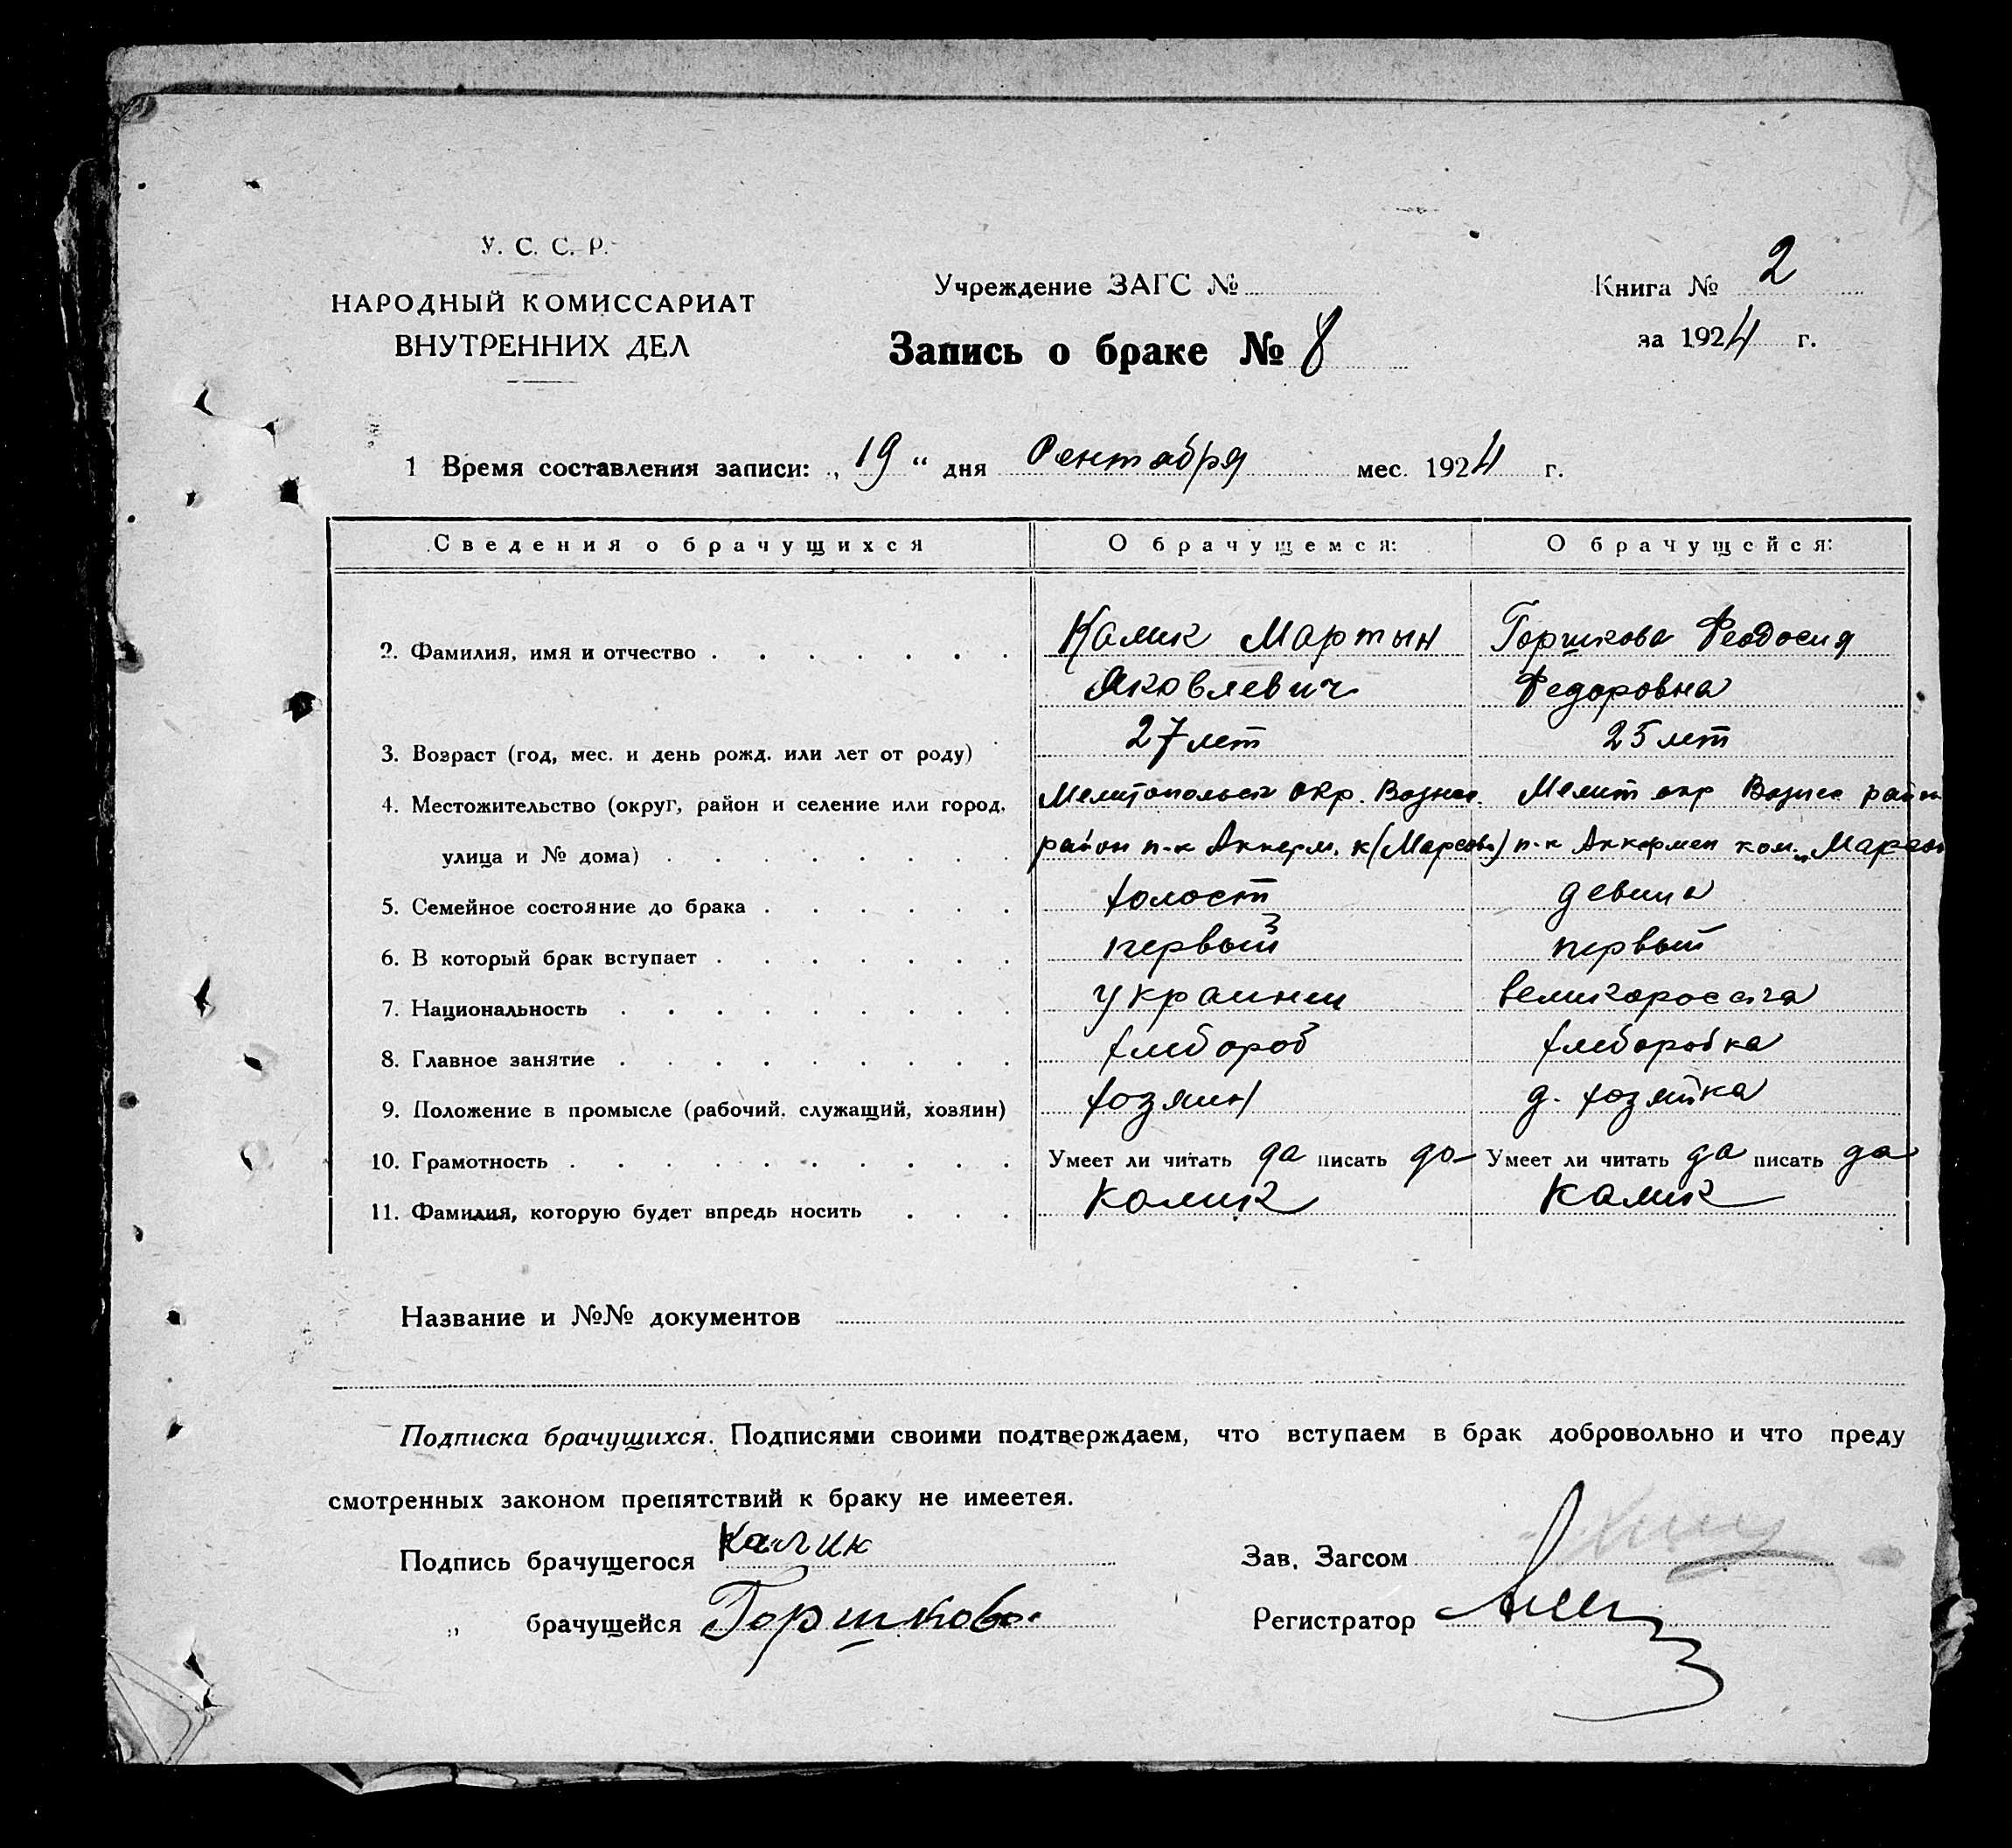 У. С. С. Р.
НАРОДНЫЙ КОМИССАРИАТ
ВНУТРЕННИХ ДЕЛ
Учреждение ЗАГС №
Запись о браке № 8
Книга № 2
за 1924 г.
1 Время составления записи: „19“ дня Сентября мес. 1924 г.
Сведения о брачущихся О брачущемся: О брачущейся:
2. Фамилия, имя и отчество Калик Мартын Горшкова Феодосия
Яковлевич Федоровна
3. Возраст (год, мес. и день рожд. или лет от роду) 27 лет 25 лет
4. Местожительство (округ, район и селение или город, Мелитопольск окр. Вознес. Мелит окр Вознес район
улица и № дома) район п-к Аккерм. к(Марсово) п-к Аккермен ком. „Марсово
5. Семейное состояние до брака холост девица
6. В который брак вступает первый первый
7. Национальность украинец
8. Главное занятие хлебороб хлеборобка
9. Положение в промысле (рабочий, служащий, хозяин) хозяин д. хозяйка
10. Грамотность Умеет ли читать да писать да Умеет ли читать да писать да
11. Фамилия, которую будет впредь носить Калик Калик
Название и №№ документов
Подписка брачущихся. Подписями своими подтверждаем, что вступаем в брак добровольно и что преду
смотренных законом препятствий к браку не имеетея.
Подпись брачущегося Калик Зав. Загсом
„ брачущейся Горшкова Регистратор